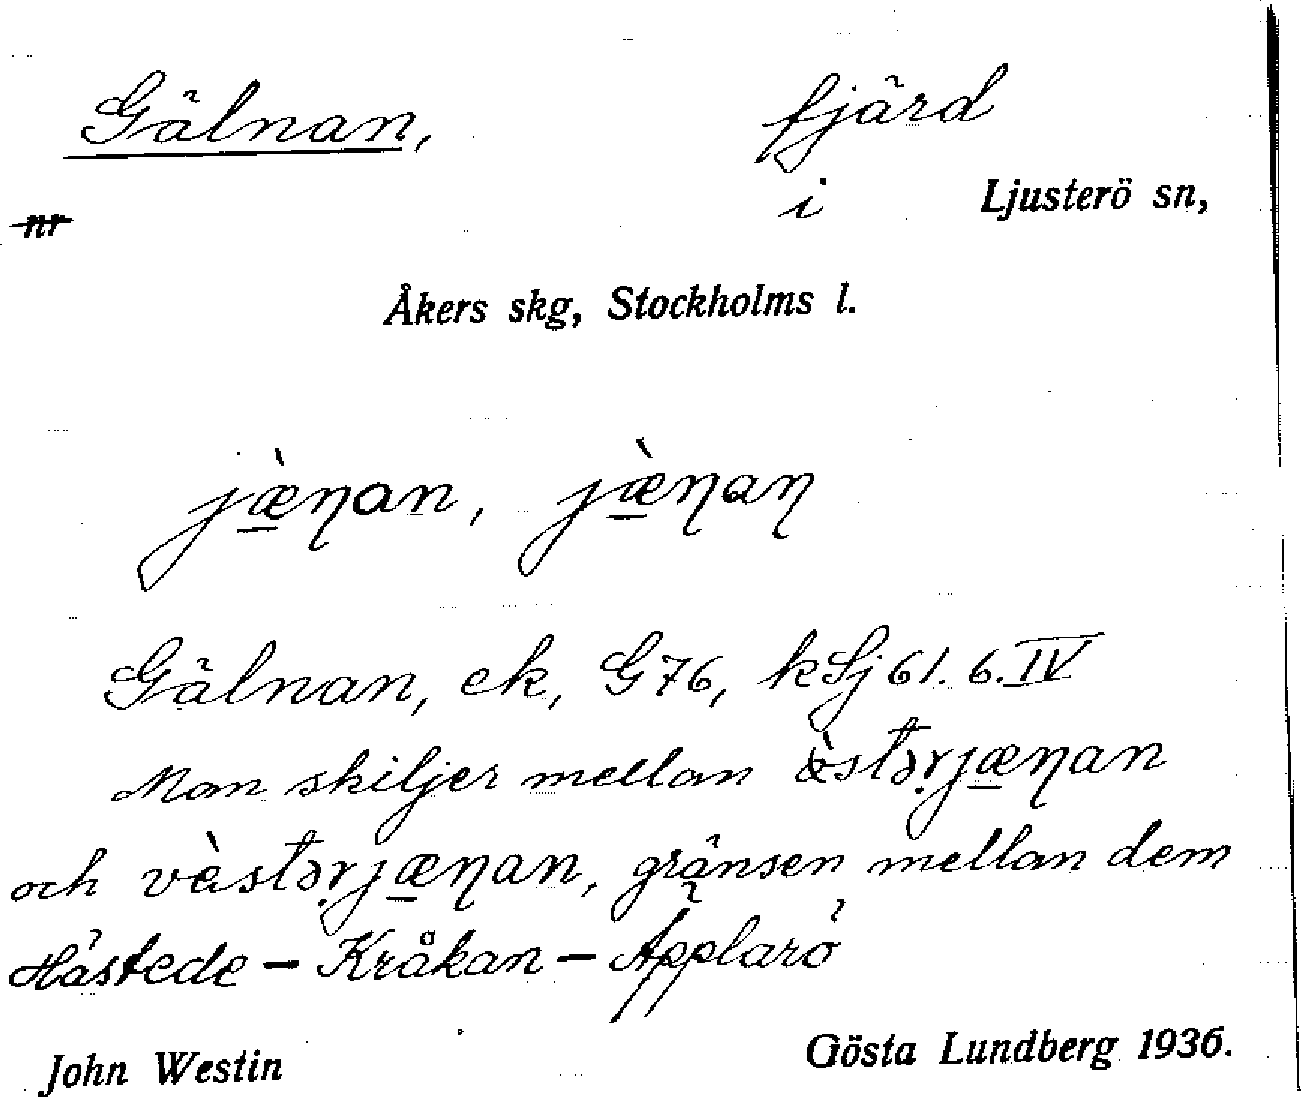 Gälnan, fjärd
i Ljusterö sn,
nr
Åkers skg, Stockholms l.
jæ̱̀ɳan, jæ̱̀ɳaɳ
Gälnan, ek, G76, kLj 61. 6. IV
Man skiljer mellan ö̀stər̥jæ̱ɳan
och vä̀stər̥jæ̱ɳan, gränsen mellan dem
Hästede – Kråkan – Äpplarö
John Westin Gösta Lundberg 1936.